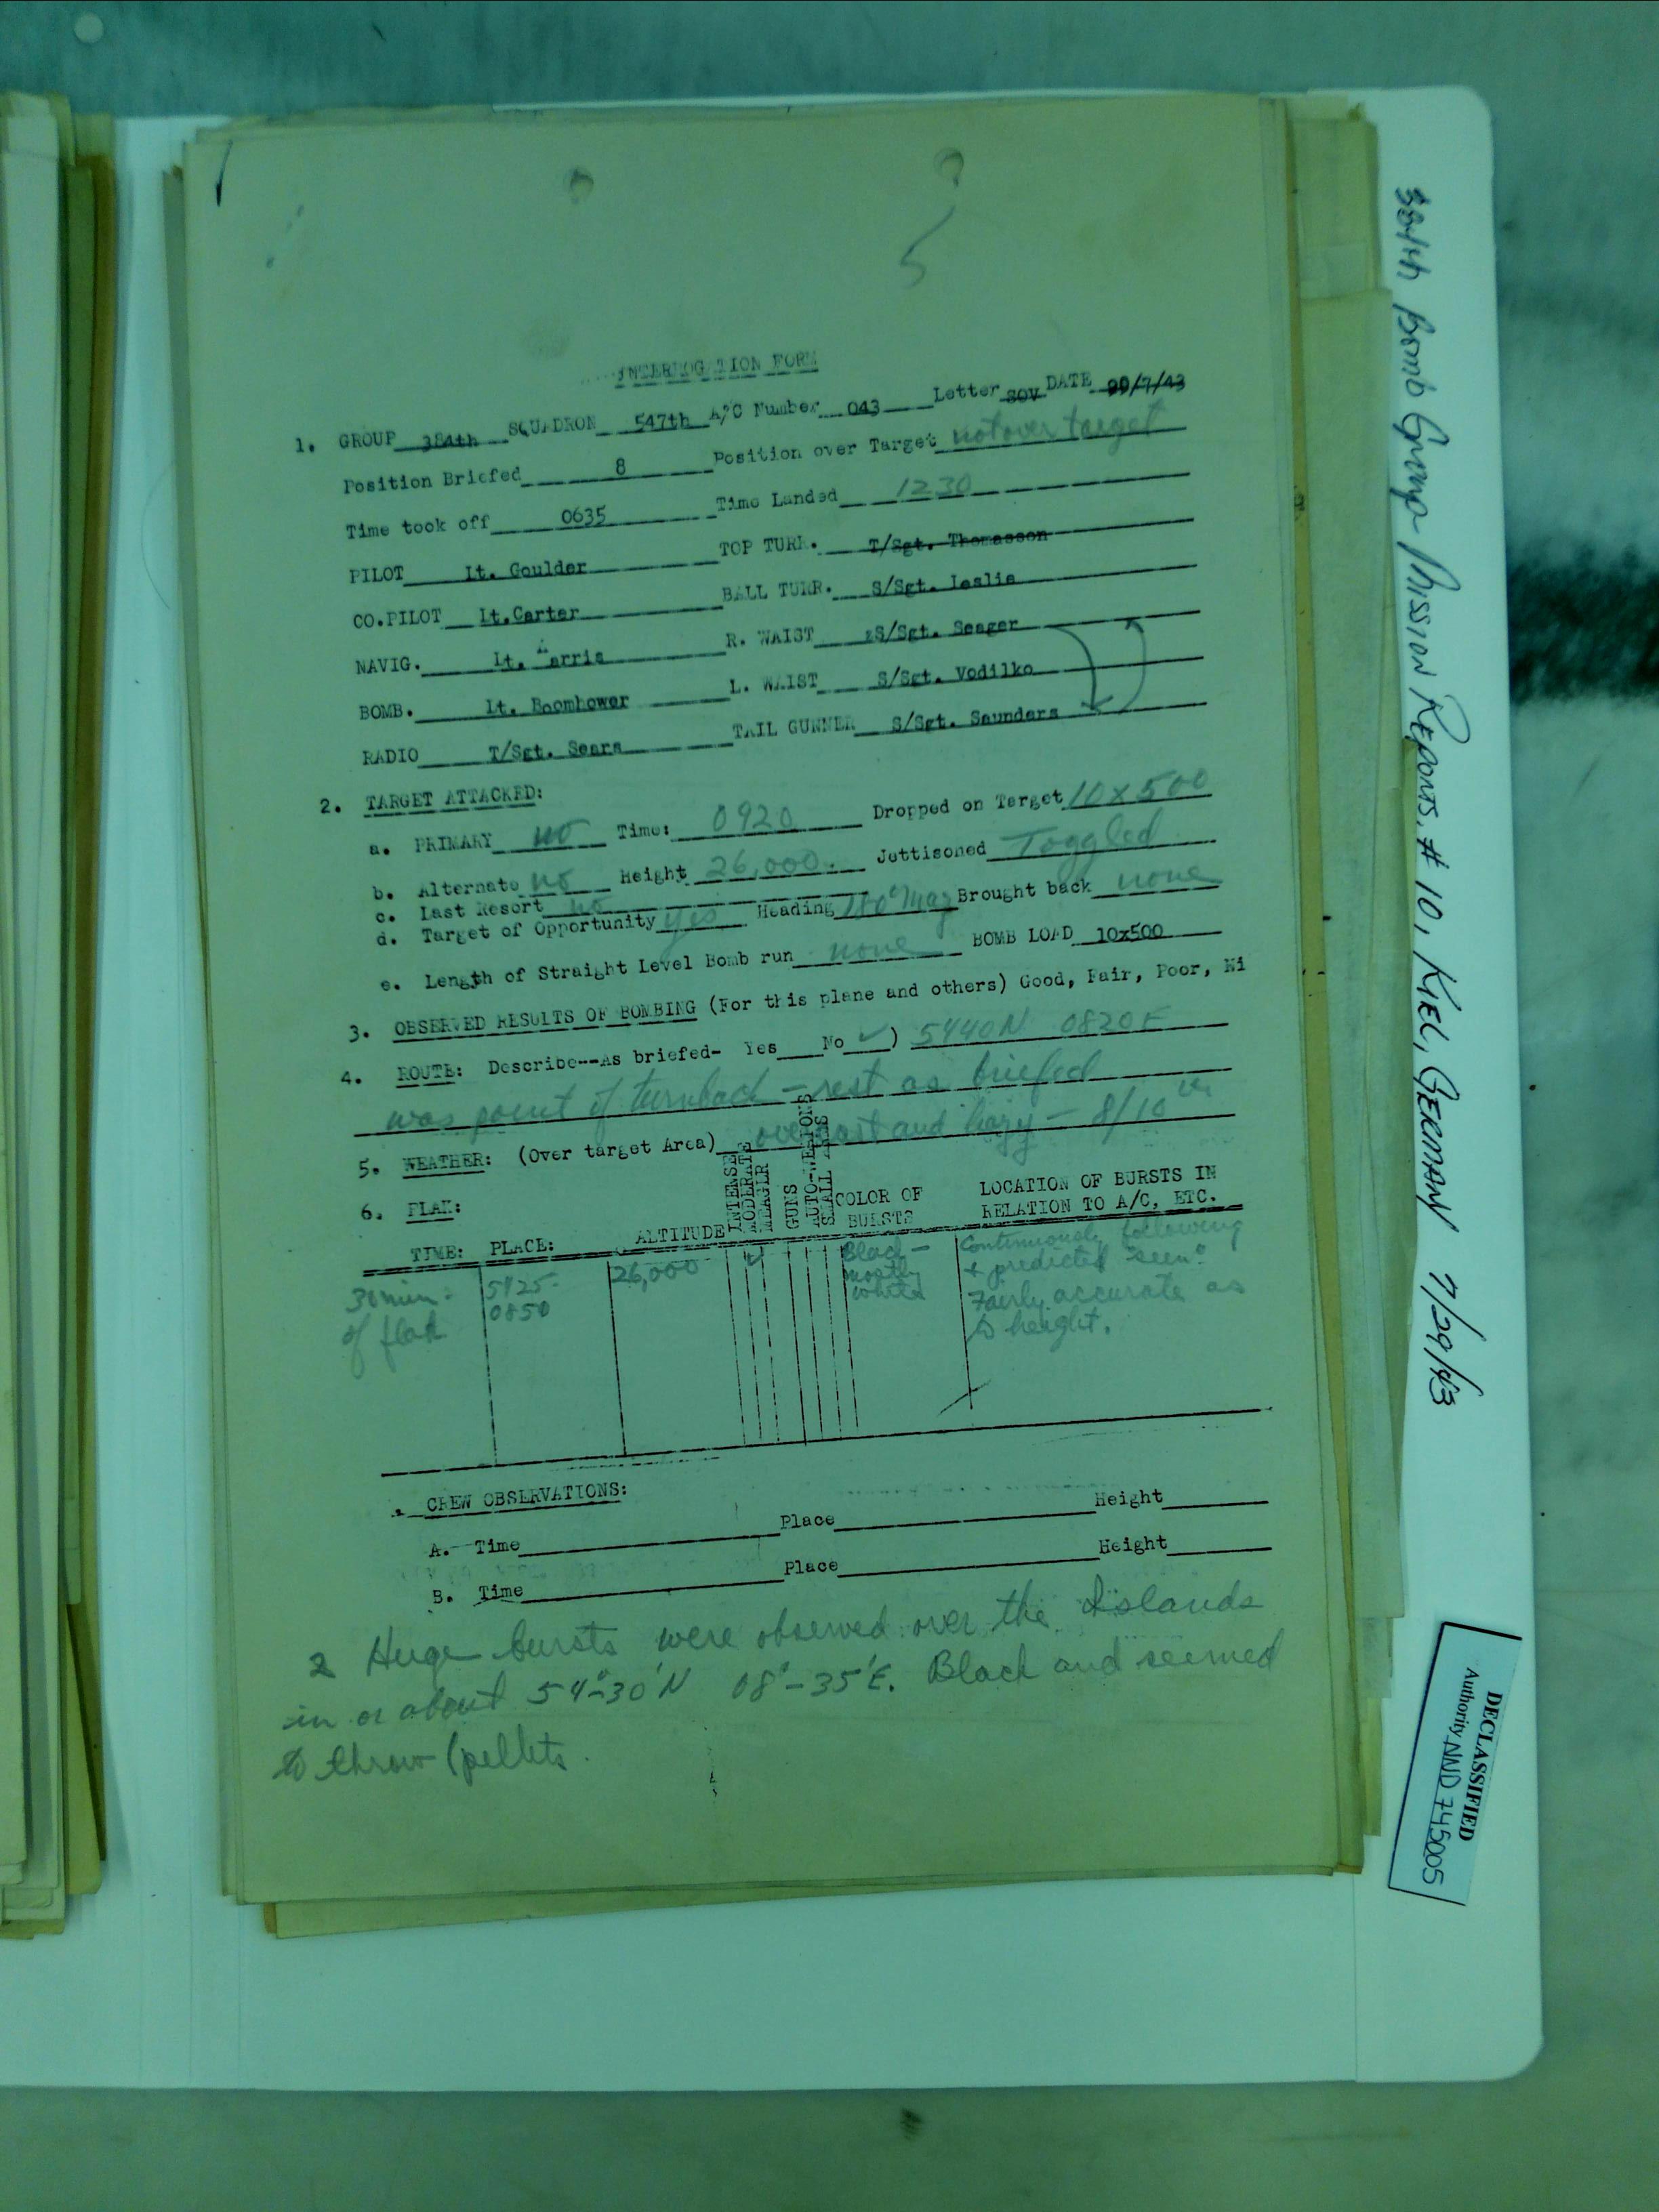 5
INTERROGATION FORM
1. GROUP 384th SQUADRON 547th A/C Number 043 Letter SOV DATE 29/7/43
Position Briefed 8 Position over Target not over target
Time took off 0635 Time Landed 1230
PILOT Lt. Goulder TOP TURR. T/Sgt. Thomasson
CO.PILOT Lt.Carter BALL TURR. S/Sgt. Leslie
NAVIG. Lt. Harris R. WAIST S/Sgt. Seager
BOMB. Lt. Boomhower L. WAIST S/Sgt. Vodilko
RADIO T/Sgt. Sears TAIL GUNNER S/Sgt. Saunders
2. TARGET ATTACKED:
a. PRIMARY no Time: 0920 Dropped on Target 10x500
b. Alternate no Height 26,000. Jettisoned Toggled
c. Last Resort no
d. Target of Opportunity yes Heading 180° Mag Brought back none
e. Length of Straight Level Bomb run none BOMB LOAD 10x500
3. OBSERVED RESULTS OF BOMBING (For this plane and others) Good, Fair, Poor, Ni
4. ROUTE: Describe--As briefed- Yes No ✓) 5440N 0820E
was point of turnback - rest as briefed
5. WEATHER: (Over target Area) overcast and hazy - 8/10
6. FLAK:
TIME: PLACE: ALTITUDE INTENSE MODERATE MEAGER GUNS AUTO-WEAPONS SMALL ARMS COLOR OF BURSTS LOCATION OF BURSTS IN RELATION TO A/C, ETC.
30 min: of flak 5425- 0850 26,000 ✓ Black - mostly white Continuously following + predicted "seen". Fairly accurate as to height.
. CREW OBSERVATIONS:
A. Time Place Height
B. Time Place Height
2 Huge bursts were observed over the Islands
in or about 54°-30'N 08°-35'E. Black and seemed
to throw (pellets.
384th Bomb Group-Mission Reports, # 10, KIEL, GERMANY 7/29/43
DECLASSIFIED
Authority NND 745005